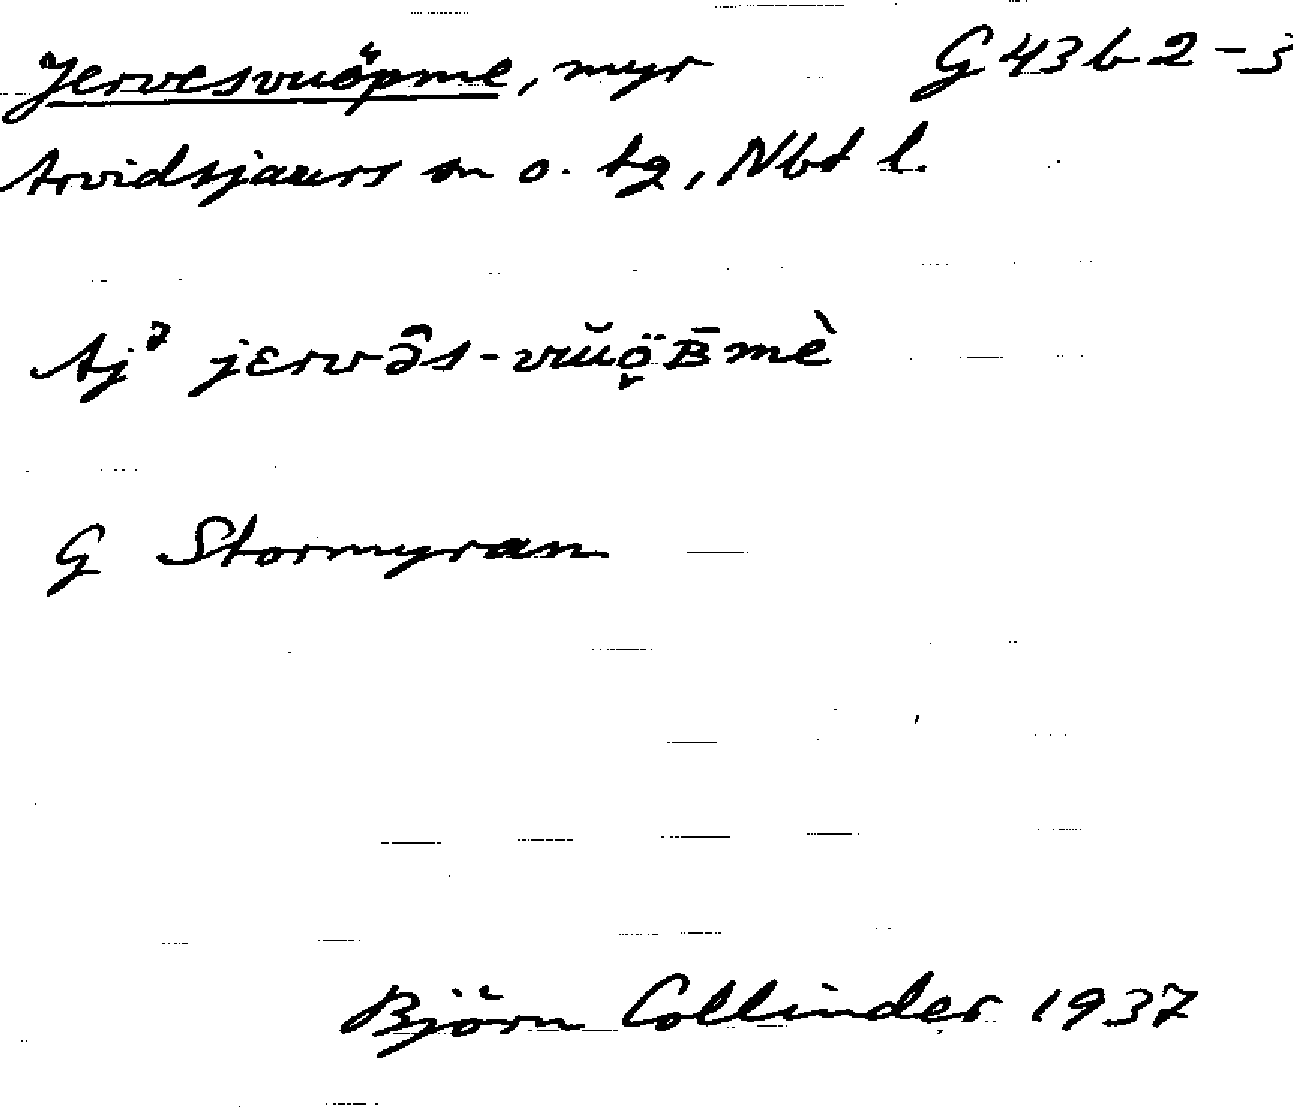 Jervesvuöpme, myr G 43 b 2-3
Arvidsjaurs sn o. tg, Nbt l.
Aj² jɛrvə̑s-vŭu̯ö̭ʙ̄mè
G Stormyran
Björn Collinder 1937